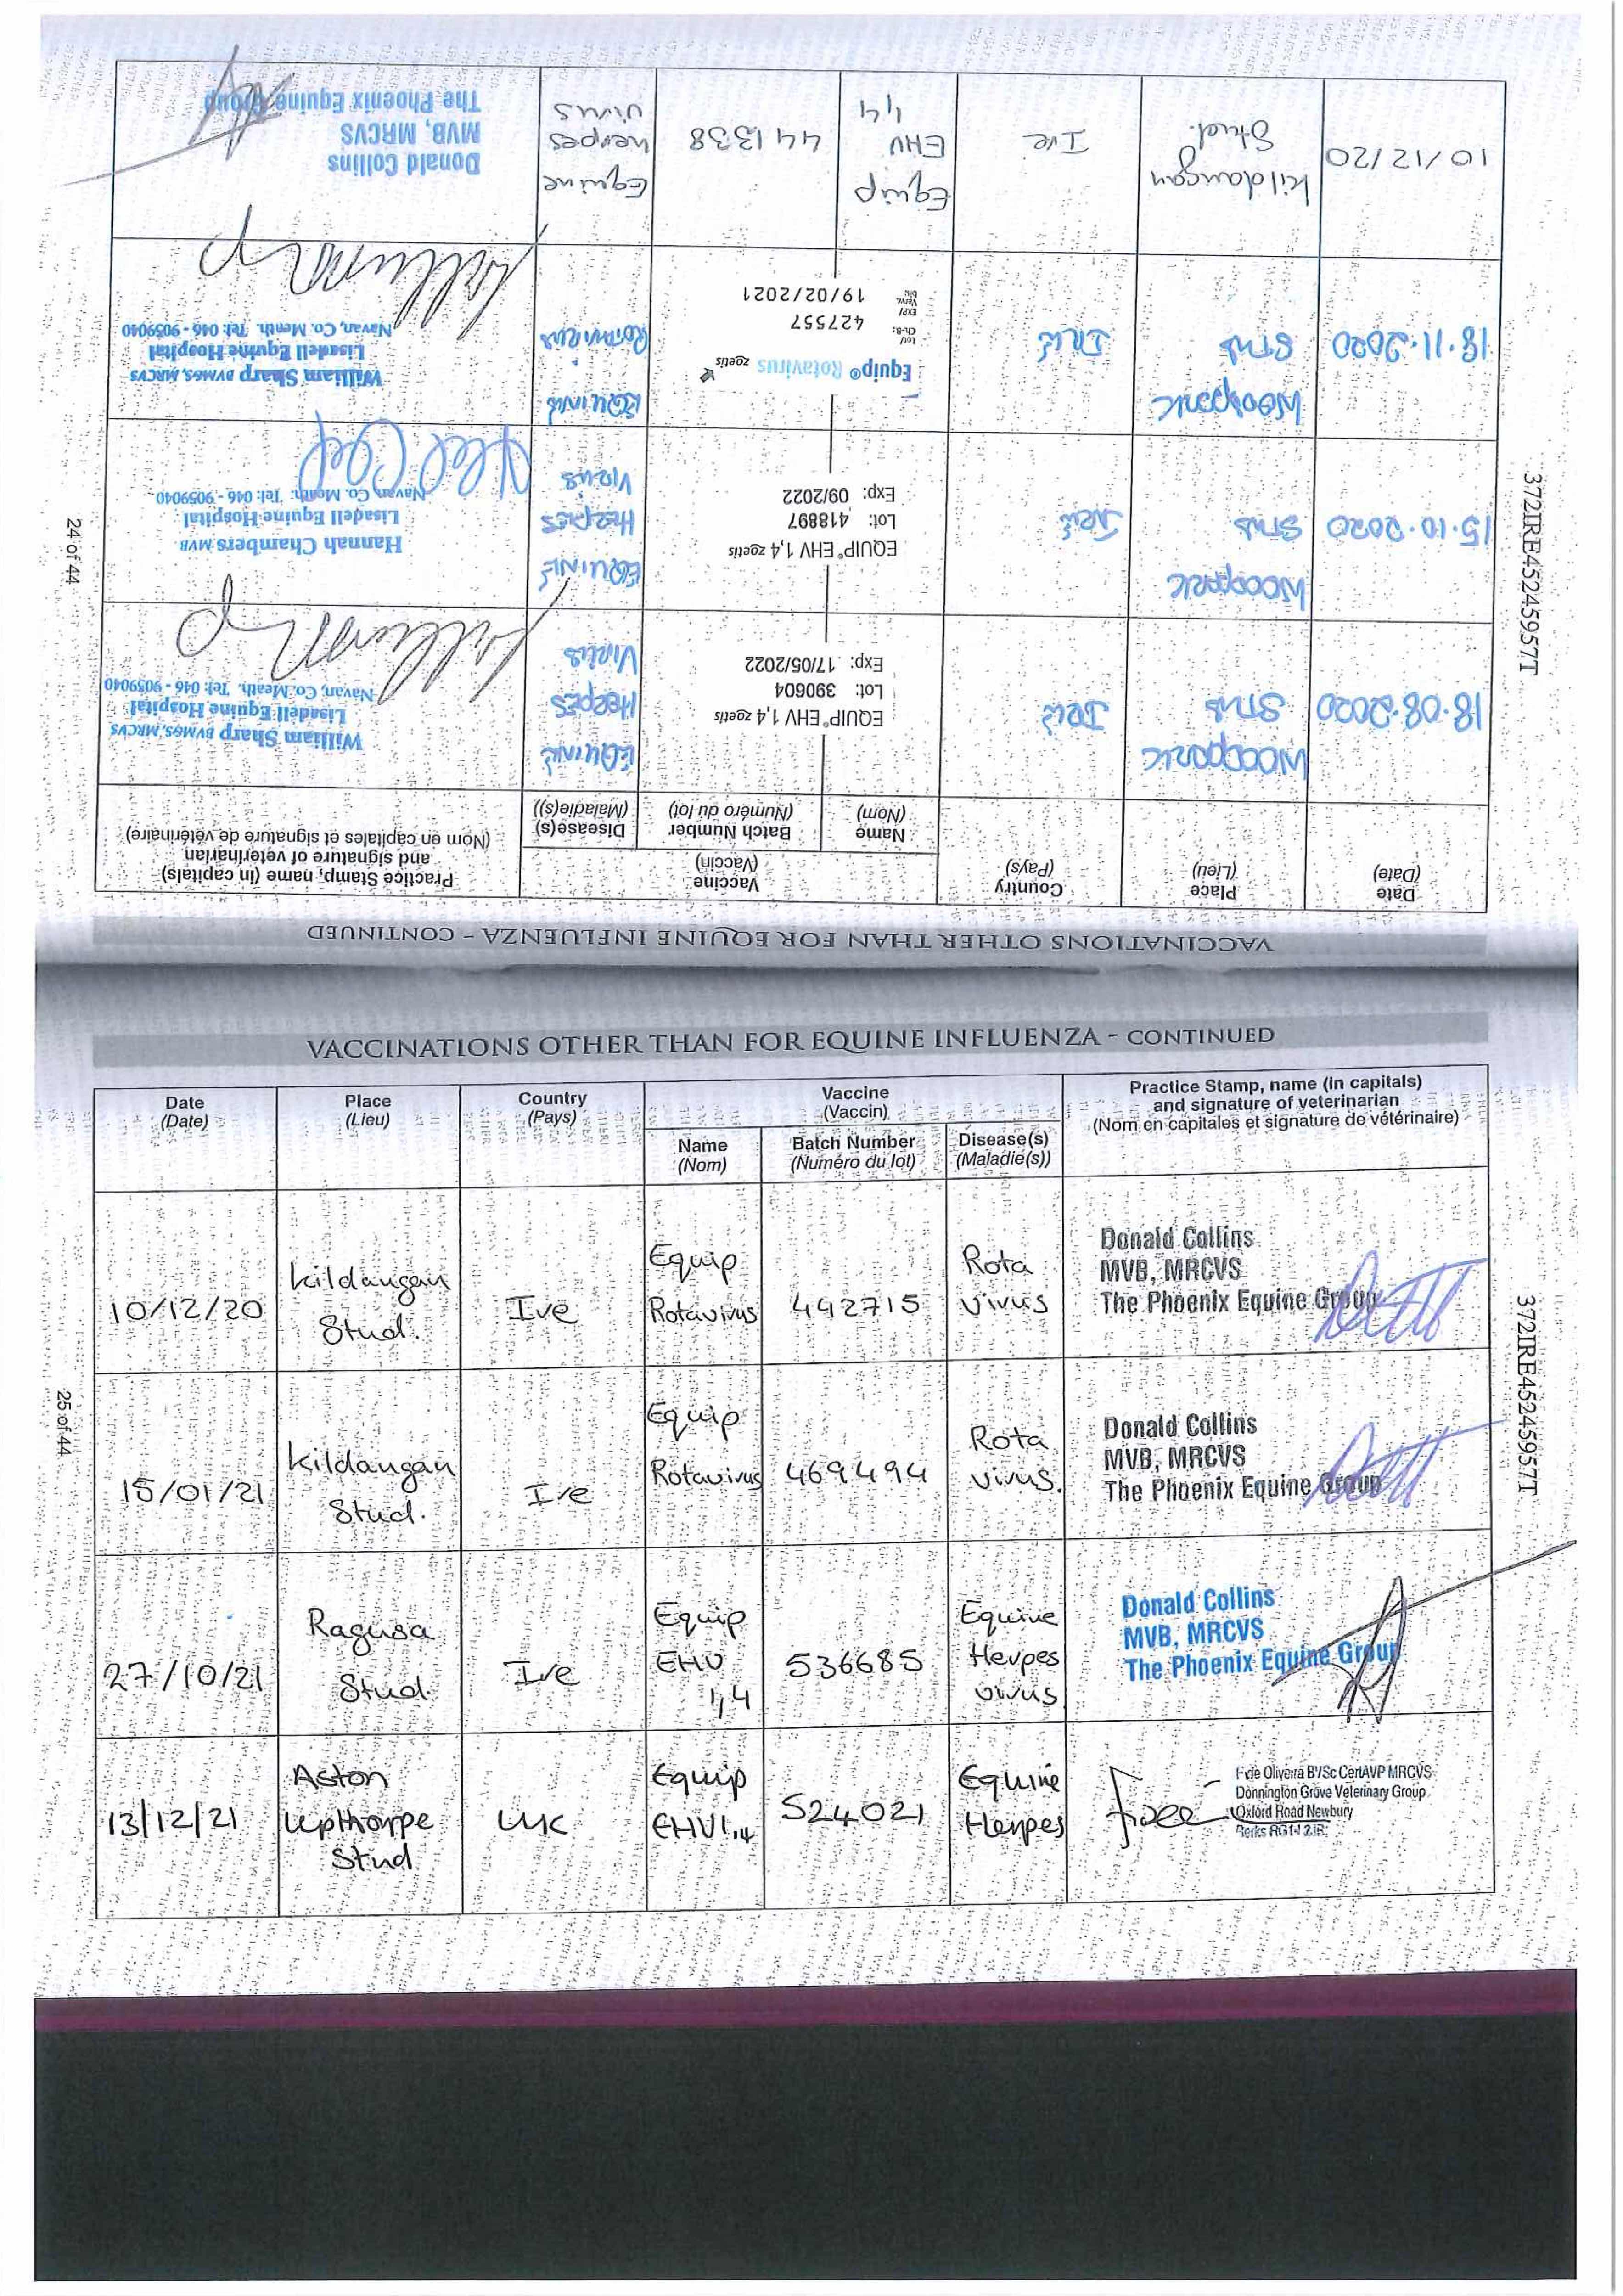 VACCINATIONS OTHER THAN FOR EQUINE INFLUENZA - CONTINUED
Date (Date) Place (Lieu) Country (Pays) Vaccine (Vaccin) Name (Nom) Batch Number (Numéro du lot) Disease(s) (Maladie(s)) Practice Stamp, name (in capitals) and signature of veterinarian (Nom en capitales et signature de vétérinaire)
18.08.2020 WOODPARK STUD IRE EQUIP® EHV 1,4 zoetis Lot: 390604 Exp: 17/05/2022 EQUINE HERPES VIRUS William Sharp BVMS, MRCVS Lisadell Equine Hospital Navan, Co. Meath. Tel: 046 - 9059040
15.10.2020 WOODPARK STUD IRE EQUIP® EHV 1,4 zoetis Lot: 418897 Exp: 09/2022 EQUINE HERPES VIRUS Hannah Chambers MVB Lisadell Equine Hospital Navan, Co. Meath. Tel: 046 - 9059040
18.11.2020 WOODPARK STUD IRE Equip® Rotavirus zoetis 427557 19/02/2021 EQUINE ROTAVIRUS William Sharp BVMS, MRCVS Lisadell Equine Hospital Navan, Co. Meath. Tel: 046 - 9059040
10/12/20 Kildangan Stud. Ire Equip EHV 1,4 441338 Equine herpes virus Donald Collins MVB, MRCVS The Phoenix Equine Group
24 of 44
372IRE45245957T
VACCINATIONS OTHER THAN FOR EQUINE INFLUENZA - CONTINUED
Date (Date) Place (Lieu) Country (Pays) Vaccine (Vaccin) Name (Nom) Batch Number (Numéro du lot) Disease(s) (Maladie(s)) Practice Stamp, name (in capitals) and signature of veterinarian (Nom en capitales et signature de vétérinaire)
10/12/20 Kildangan Stud. Ire Equip Rotavirus 442715 Rota virus Donald Collins MVB, MRCVS The Phoenix Equine Group
15/01/21 Kildangan Stud. Ire Equip Rotavirus 469494 Rota virus. Donald Collins MVB, MRCVS The Phoenix Equine Group
27/10/21 Ragusa Stud Ire Equip EHV 1,4 536685 Equine Herpes virus Donald Collins MVB, MRCVS The Phoenix Equine Group
13/12/21 Aston Upthorpe Stud UK Equip EHV1,4 524021 Equine Herpes F de Oliveira BVSc CertAVP MRCVS Donnington Grove Veterinary Group Oxford Road Newbury Berks RG14 2JB
25 of 44
372IRE45245957T